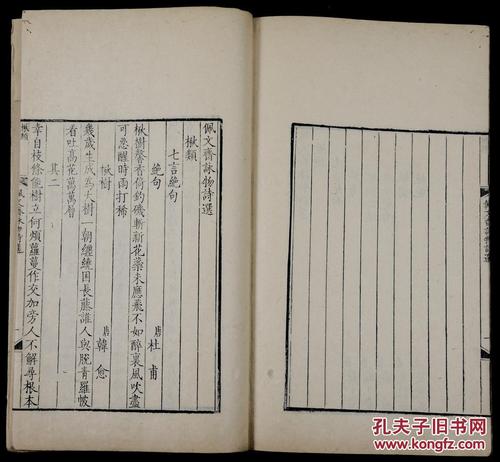 佩文齋詠物詩選
佩文齋詠物詩選
楸類
七言絶句
絶句 唐 杜甫
楸樹馨香倚釣磯斬新花蘂未應飛不如醉裏風吹盡
可忍醒時雨打稀
楸樹 唐 韓愈
幾歲生成為大樹一朝纏繞困長藤誰人與脫青羅帔
看吐高花萬萬層
其二
幸自枝條能樹立何煩蘿蔓作交加旁人不解尋根本
佩文齋詠物詩選 一
孔夫子旧书网
www.kongfz.com